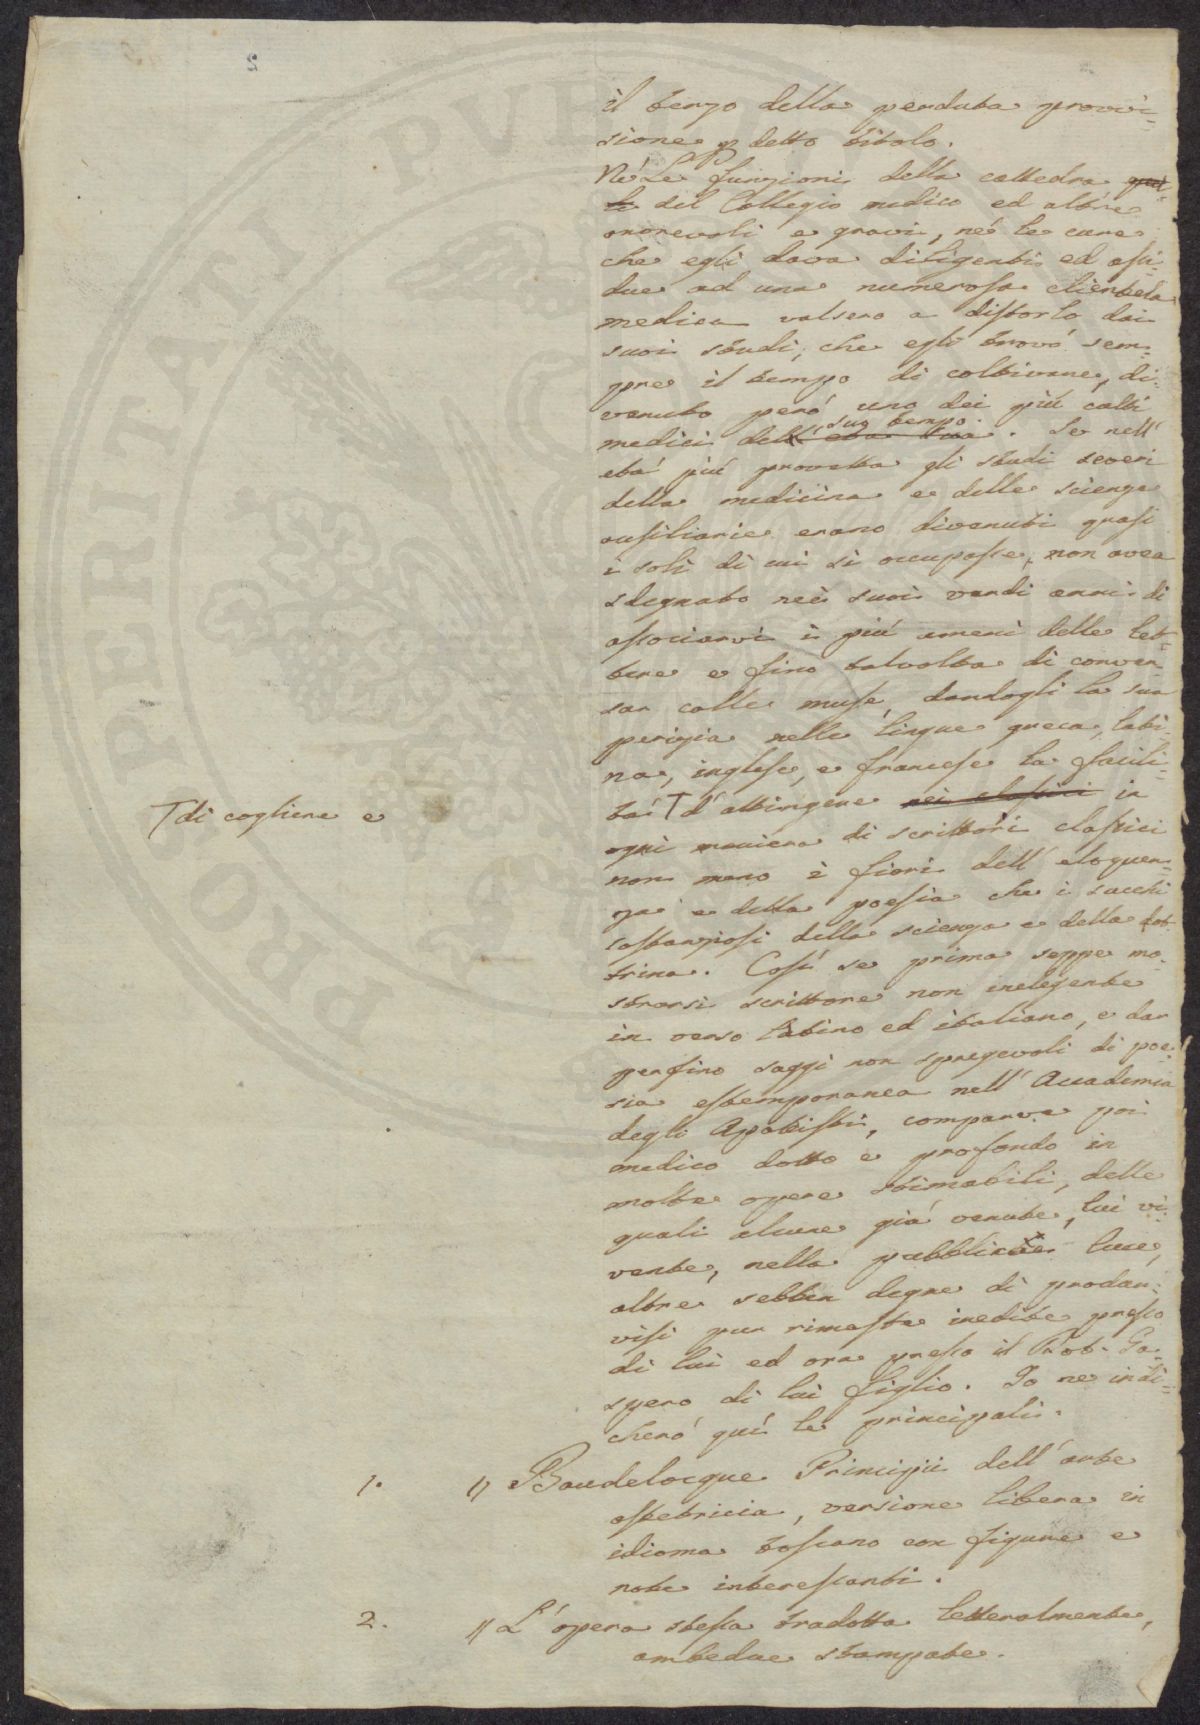 2
il terzo della perduta provi-
sione p detto titolo.
Né Le funzioni della cattedra
del Collegio medico ed altre
onorevoli e gravi, né le cure
che egli dava diligenti ed assi-
due ad una numerosa clientela
medica valsero a distorlo dai
suoi studi, che egli trovó sem-
pre il tempo di coltivare, di-
venuto peró uno dei piú colti
suo tempo
medici dell'età sua. Se nell'
etá piú provetta gli studi severi
della medicina e delle scienze
ausiliarie erano divenuti quasi
i soli di cui si occupasse, non avea
sdegnato nei suoi verdi anni di
associarvi i piú ameni delle let-
tere e fino talvolta di conver-
sar colle muse, dandogli la sua
perizia nelle lingue greca, lati-
na, inglese, e francese la facili-
T di cogliere e
tá T d'attingere nei classici in
ogni maniera di scrittori classici
non meno i fiori dell'eloquen-
za e della poesia che i succhi
sostanziosi della scienza e della dot-
trina. Cosí se prima seppe mo-
strarsi scrittore non inelegante
in verso latino ed italiano, e dar
perfino saggi non spregevoli di poe-
sia estemporanea nell'Accademia
degli Apatisti, comparve poi
medico dotto e profondo in
molte opere stimabili, delle
quali alcune giá venute, lui vi-
vente, nella pubblica luce,
altre sebben degne di produr-
visi pur rimaste inedite presso
di lui ed ora presso il Dot. Ga-
spero di lui figlio. Io ne indi-
cheró quí le principali.
1. " Baudelocque Principii dell'arte
ostetricia, versione libera in
idioma toscano con figure e
note interessanti.
2. " L'opera stessa tradotta letteralmente,
ambedue stampate.
PROPERITATI PVB